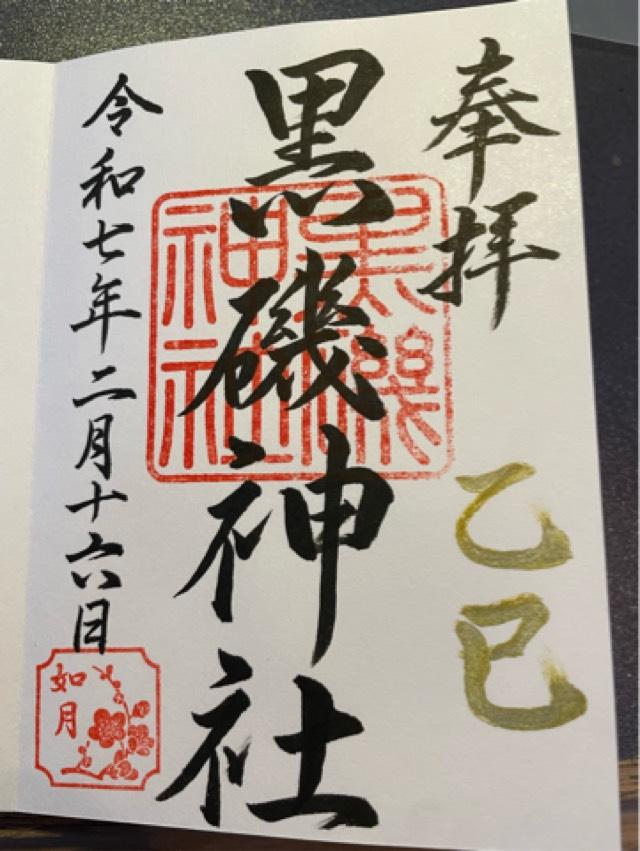 奉拝
乙巳
黒磯神社
黒磯
神社
令和七年二月十六日
如月